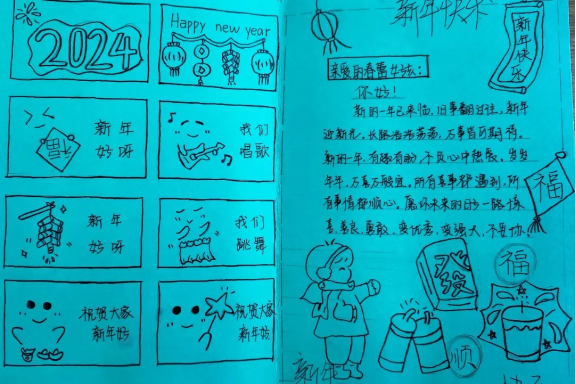 2024
Happy new year
新年
好呀
我们
唱歌
新年
好呀
我们
跳舞
祝贺大家
新年好
祝贺大家
新年好
新年快乐
新年快乐
亲爱的春蕾女孩:
你好!
新的一年已来临,旧事翻过往,新年
迎新光,长路浩浩荡荡,万事皆可期待。
新的一年,有趣有盼,不负心中热爱。岁岁
年年,万喜万般宜。所有喜事都遇到,所
有事情都顺心。愿你未来的日子一路
善良,勇敢,变优秀,变强大,不负
福
發
福
顺
新年